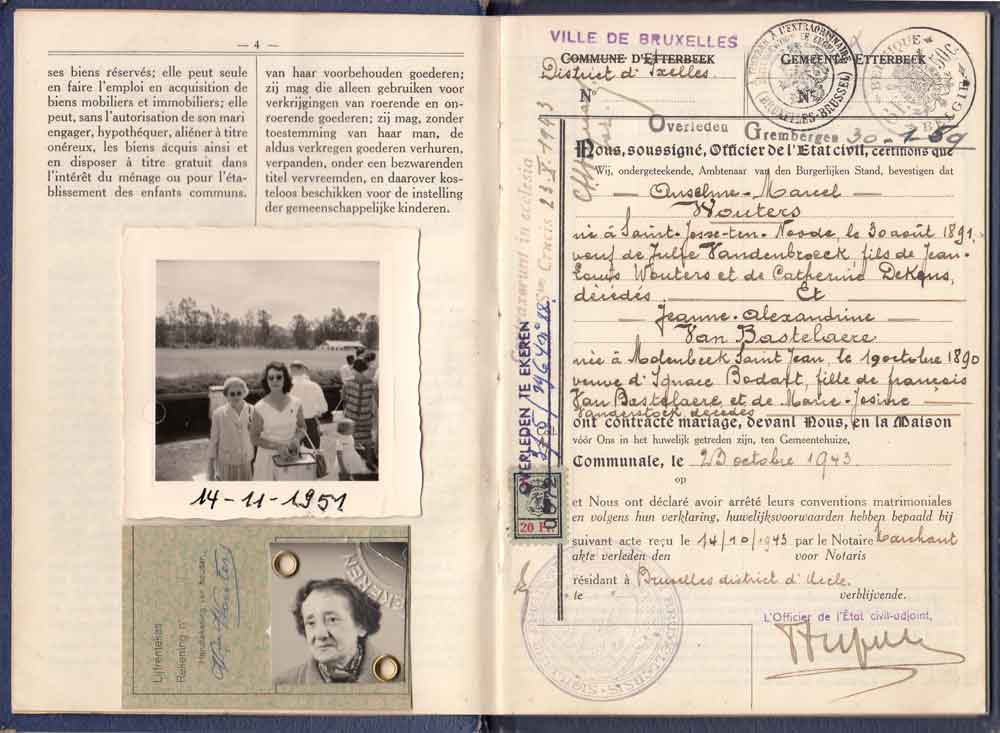 — 4 —
ses biens réservés; elle peut seule
en faire l'emploi en acquisition de
biens mobiliers et immobiliers; elle
peut, sans l'autorisation de son mari
engager, hypothéquer, aliéner à titre
onéreux, les biens acquis ainsi et
en disposer à titre gratuit dans
l'intérêt du ménage ou pour l'éta-
blissement des enfants communs.
van haar voorbehouden goederen;
zij mag die alleen gebruiken voor
verkrijgingen van roerende en on-
roerende goederen; zij mag, zonder
toestemming van haar man, de
aldus verkregen goederen verhuren,
verpanden, onder een bezwarenden
titel vervreemden, en daarover kos-
teloos beschikken voor de instelling
der gemeenschappelijke kinderen.
14-11-1951
Lijfrentekas
Rekening nr
Handtekening van houder,
Wouters
EKEREN
VILLE DE BRUXELLES
COMMUNE D'ETTERBEEK
GEMEENTE ETTERBEEK
District d'Ixelles.
N°
N°
(BRUXELLES-BRUSSEL)
BELGIQUE
BELGIË
Overleden Grembergen 30-1-89
Nous, soussigné, Officier de l'Etat civil, certifions que
Wij, ondergeteekende, Ambtenaar van den Burgerlijken Stand, bevestigen dat
Anselme-Marcel
Wouters
né à Saint-Josse-ten-Noode, le 30 août 1891,
veuf de Julie Vandenbroeck, fils de Jean-
Louis Wouters et de Catherine DeKens,
décédés. Et
Jeanne-Alexandrine
Van Bastelaere
née à Molenbeek Saint Jean, le 19 octobre 1890
veuve d'Ignace Bodart, fille de françois
Van Bastelaere et de Marie-Josine
Vanderstock décédés
ont contracté mariage, devant Nous, en la Maison
vóór Ons in het huwelijk getreden zijn, ten Gemeentehuize,
Communale, le 23 octobre 1943.
op
et Nous ont déclaré avoir arrêté leurs conventions matrimoniales
en volgens hun verklaring, huwelijksvoorwaarden hebben bepaald bij
suivant acte reçu le 14/10/1943 par le Notaire
akte verleden den voor Notaris
résidant à Bruxelles district d'Uccle.
te verblijvende.
L'Officier de l'État civil-adjoint,
in ecclesia
Crucis 23.X.1943
OVERLEDEN TE EKEREN
20 Fr.